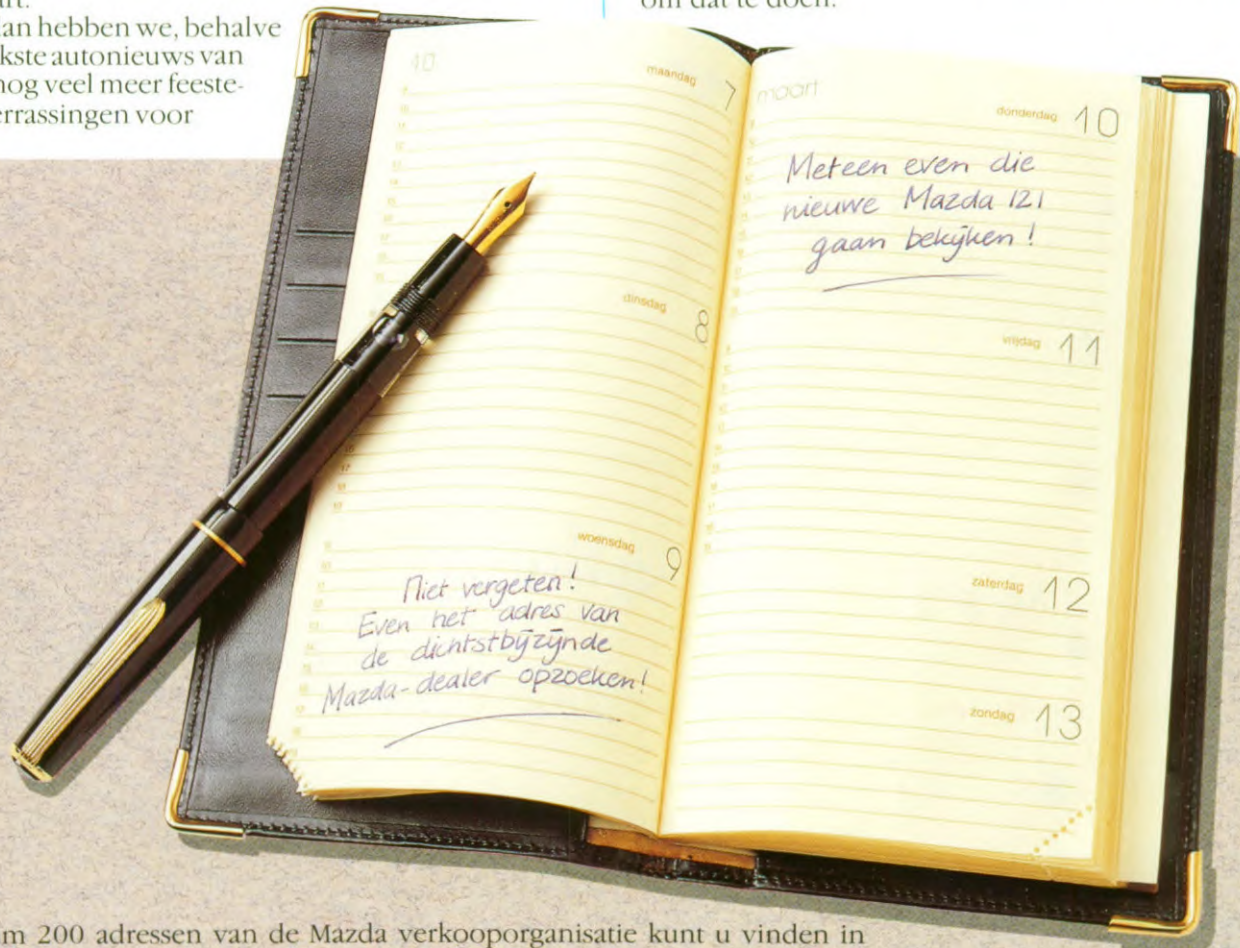 an hebben we, behalve
kste autonieuws van
nog veel meer feeste-
errassingen voor
om dat te doen.
10
maandag 7
dinsdag 8
woensdag 9
Niet vergeten!
Even het adres van
de dichtstbijzijnde
Mazda-dealer opzoeken!
maart
donderdag 10
Meteen even die
nieuwe Mazda 121
gaan bekijken!
vrijdag 11
zaterdag 12
zondag 13
m 200 adressen van de Mazda verkooporganisatie kunt u vinden in